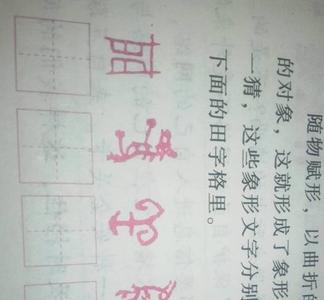 随物赋形，以曲折
的对象，这就形成了象形
一猜，这些象形文字分别
下面的田字格里。